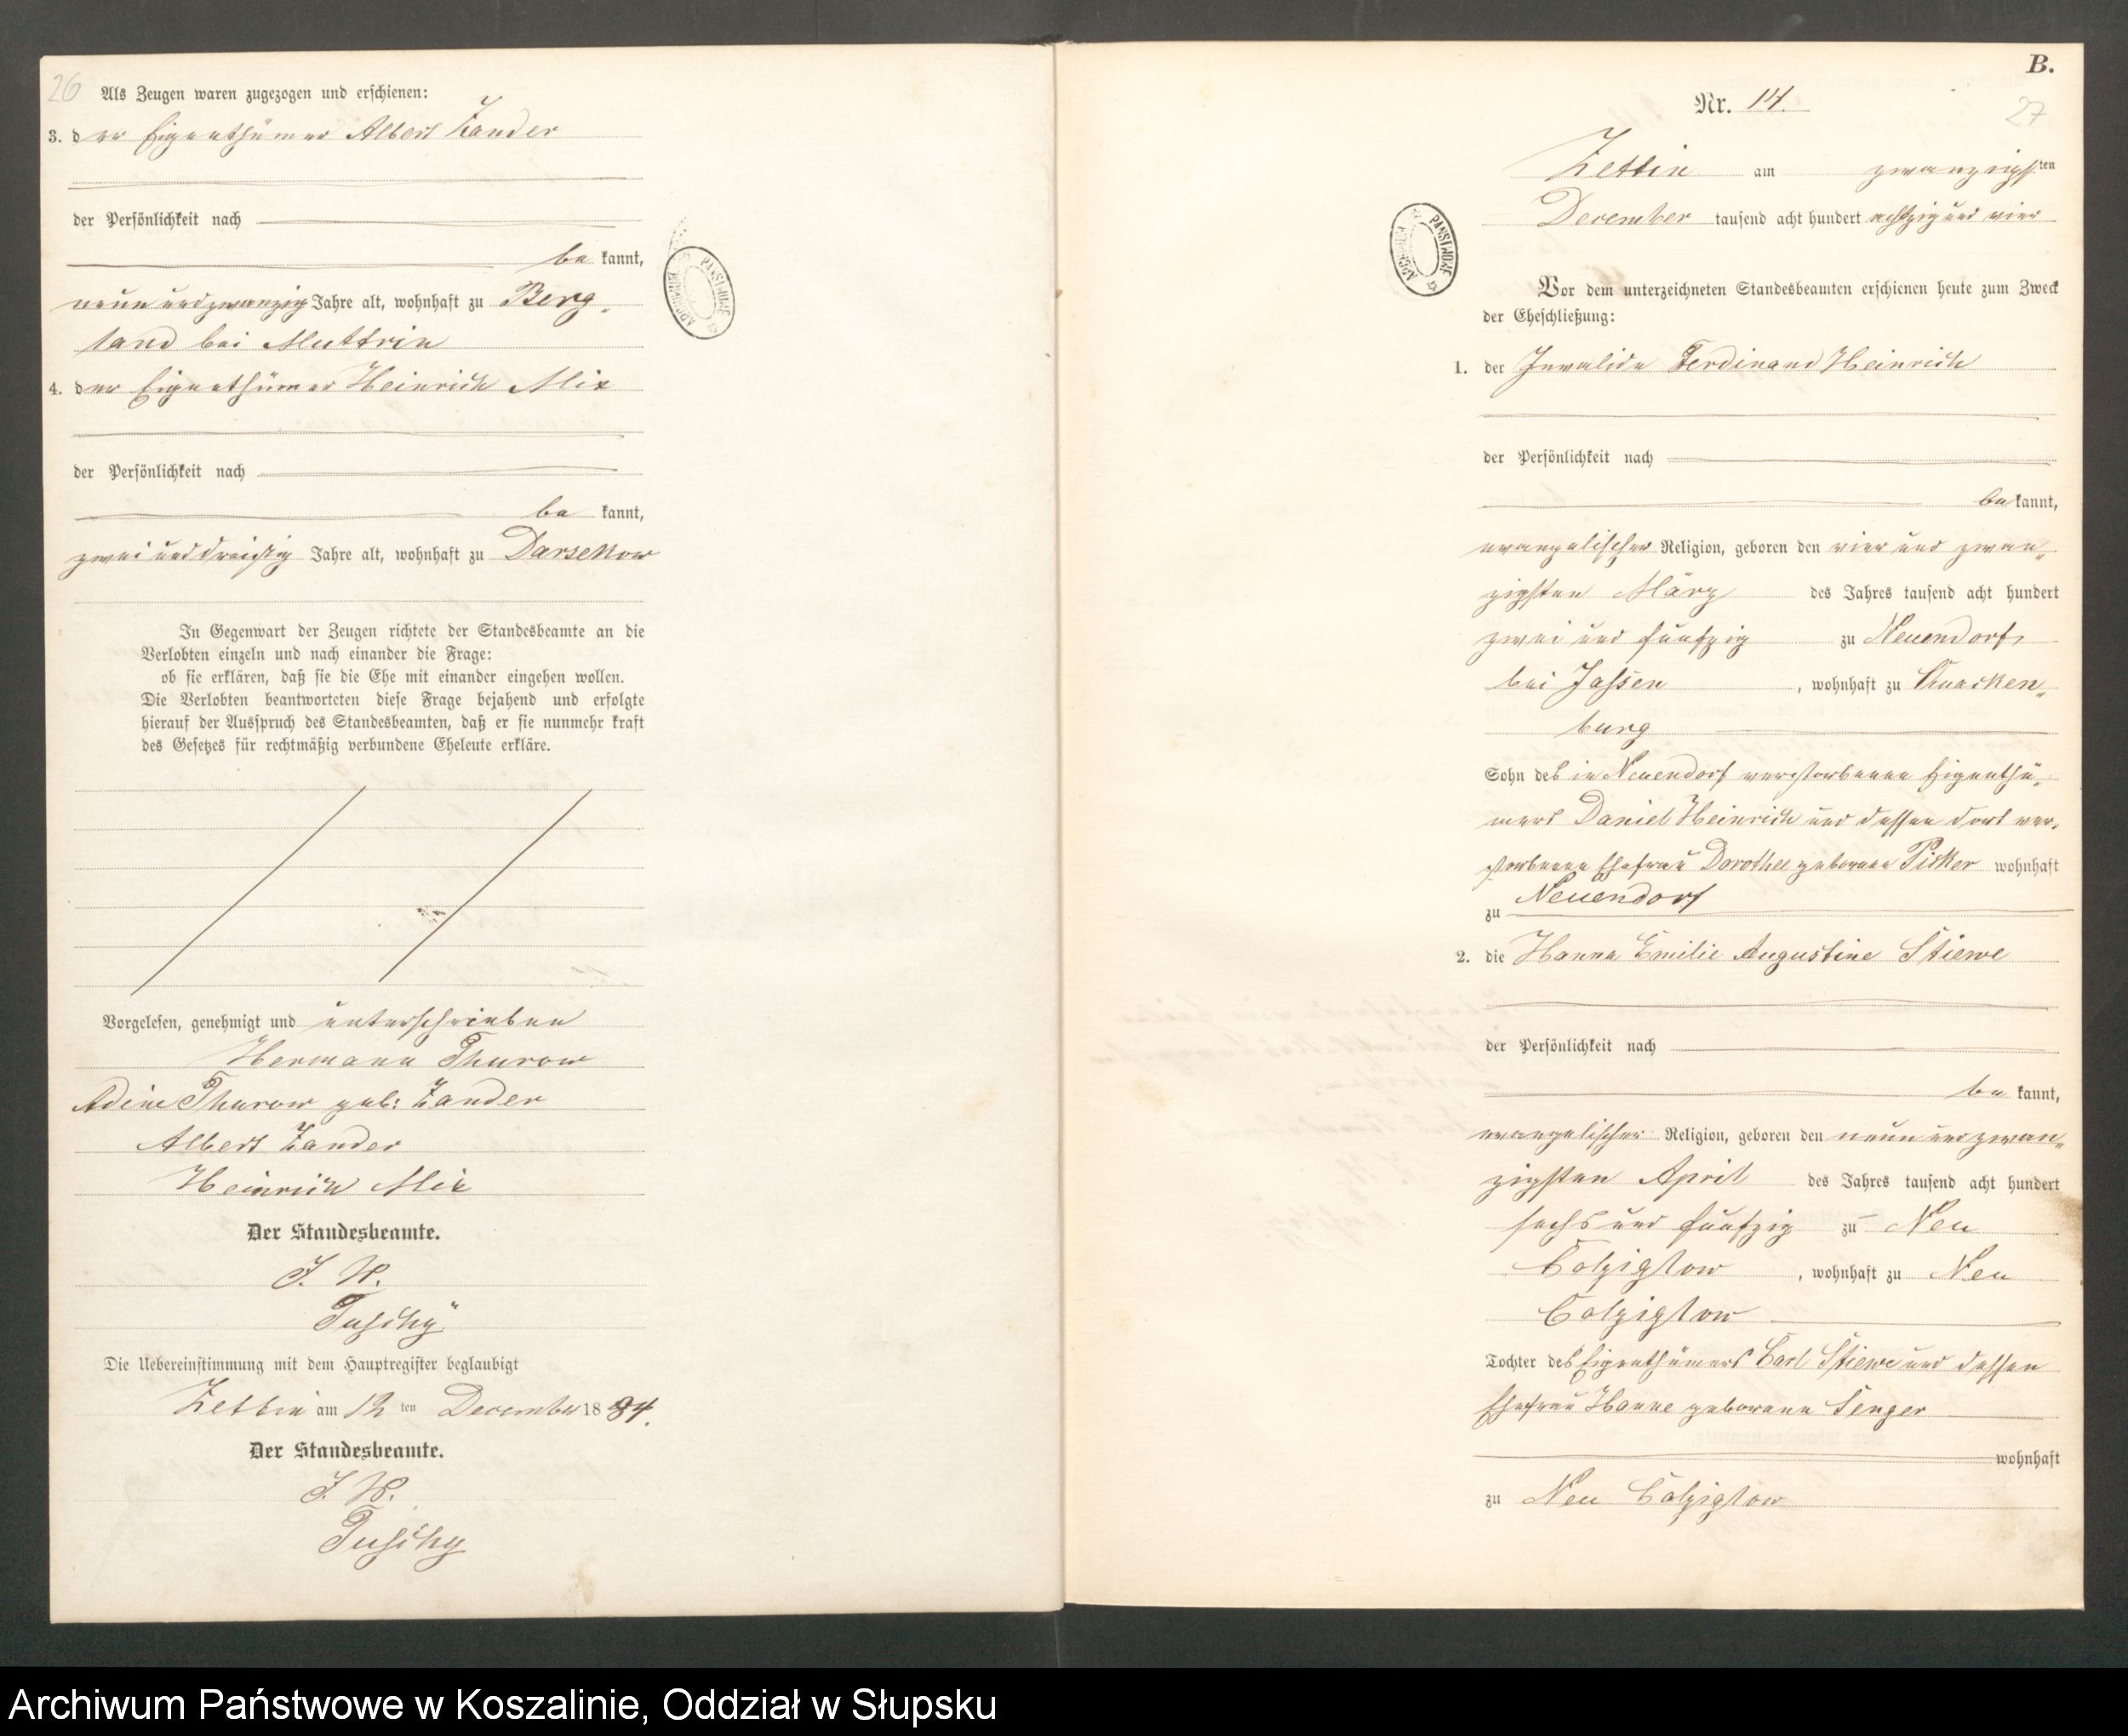 26
Als Zeugen waren zugezogen und erschienen:
3. der Eigenthümer Albert Zander
der Persönlichkeit nach
be kannt,
neun und zwanzig Jahre alt, wohnhaft zu Berg„
land bei Muttrin
4. der Eigenthümer Heinrich Mix
der Persönlichkeit nach
be kannt,
zwei und dreißig Jahre alt, wohnhaft zu Darsekow
In Gegenwart der Zeugen richtete der Standesbeamte an die
Verlobten einzeln und nach einander die Frage:
ob sie erklären, daß sie die Ehe mit einander eingehen wollen.
Die Verlobten beantworteten diese Frage bejahend und erfolgte
hierauf der Ausspruch des Standesbeamten, daß er sie nunmehr kraft
des Gesetzes für rechtmäßig verbundene Eheleute erkläre.
Vorgelesen, genehmigt und unterschrieben
Hermann Thurow
Adine Thurow geb: Zander
Albert Zander
Heinrich Mix
Der Standesbeamte.
J. V.
Tuschy
Die Uebereinstimmung mit dem Hauptregister beglaubigt
Zettin am 12 ten December 18 84.
Der Standesbeamte.
J. V.
Tuschy
B.
Nr. 14.
27
Zettin am zwanzigsten
December tausend acht hundert achtzig und vier
Vor dem unterzeichneten Standesbeamten erschienen heute zum Zweck
der Eheschließung:
1. der Invalide Ferdinand Heinrich
der Persönlichkeit nach
be kannt,
evangelischer Religion, geboren den vier und zwan„
zigsten März des Jahres tausend acht hundert
zwei und fünfzig zu Neuendorf
bei Jassen, wohnhaft zu Quacken„
burg
Sohn des in Neuendorf verstorbenen Eigenthü„
mers Daniel Heinrich und dessen dort ver„
storbene Ehefrau Dorothee geborene Picker wohnhaft
zu Neuendorf
2. die Hanna Emilie Augustine Stiewe
der Persönlichkeit nach
be kannt,
evangelischer Religion, geboren den neun und zwan„
zigsten April des Jahres tausend acht hundert
sechs und fünfzig zu Neu
Colziglow, wohnhaft zu Neu
Colziglow
Tochter des Eigenthümers Carl Stiewe und dessen
Ehefrau Hanne geborene Senger
wohnhaft
zu Neu Colziglow
Archiwum Państwowe w Koszalinie, Oddział w Słupsku